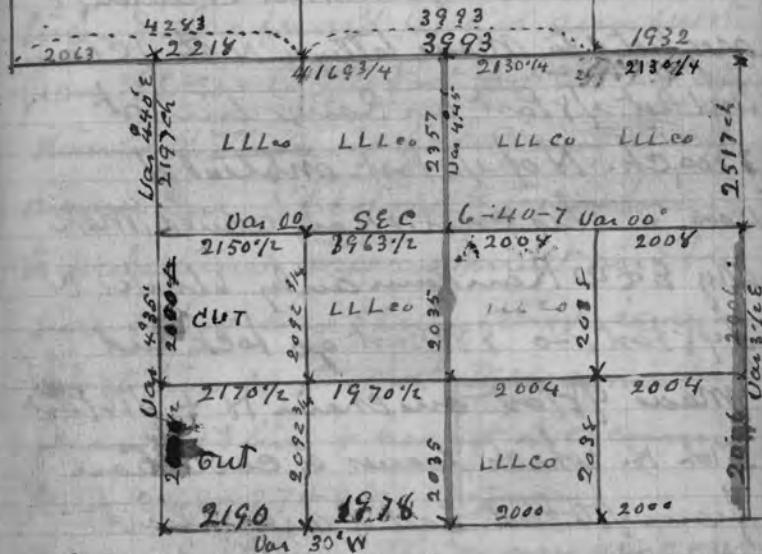 4283 3993
2063 2218 3993 1932
4169 3/4 2130 1/4 2130 1/4
Var 4°40'E
2197 ch
LLLco LLLco 2357 Var 4.45' LLL Co LLLco 2517 ch
Var 00 SEC 6-40-7 Var 00°
2150 1/2 3963 1/2 2008 2008
Var 4°35'
CUT 2092 3/4 LLLco 2035 LLLco 2038 Var 3 1/2 E
2170 1/2 1970 1/2 2004 2004
CUT 2092 3/4 2035 LLLCo 2038
2190 1978 2000 2000
Var 30'W